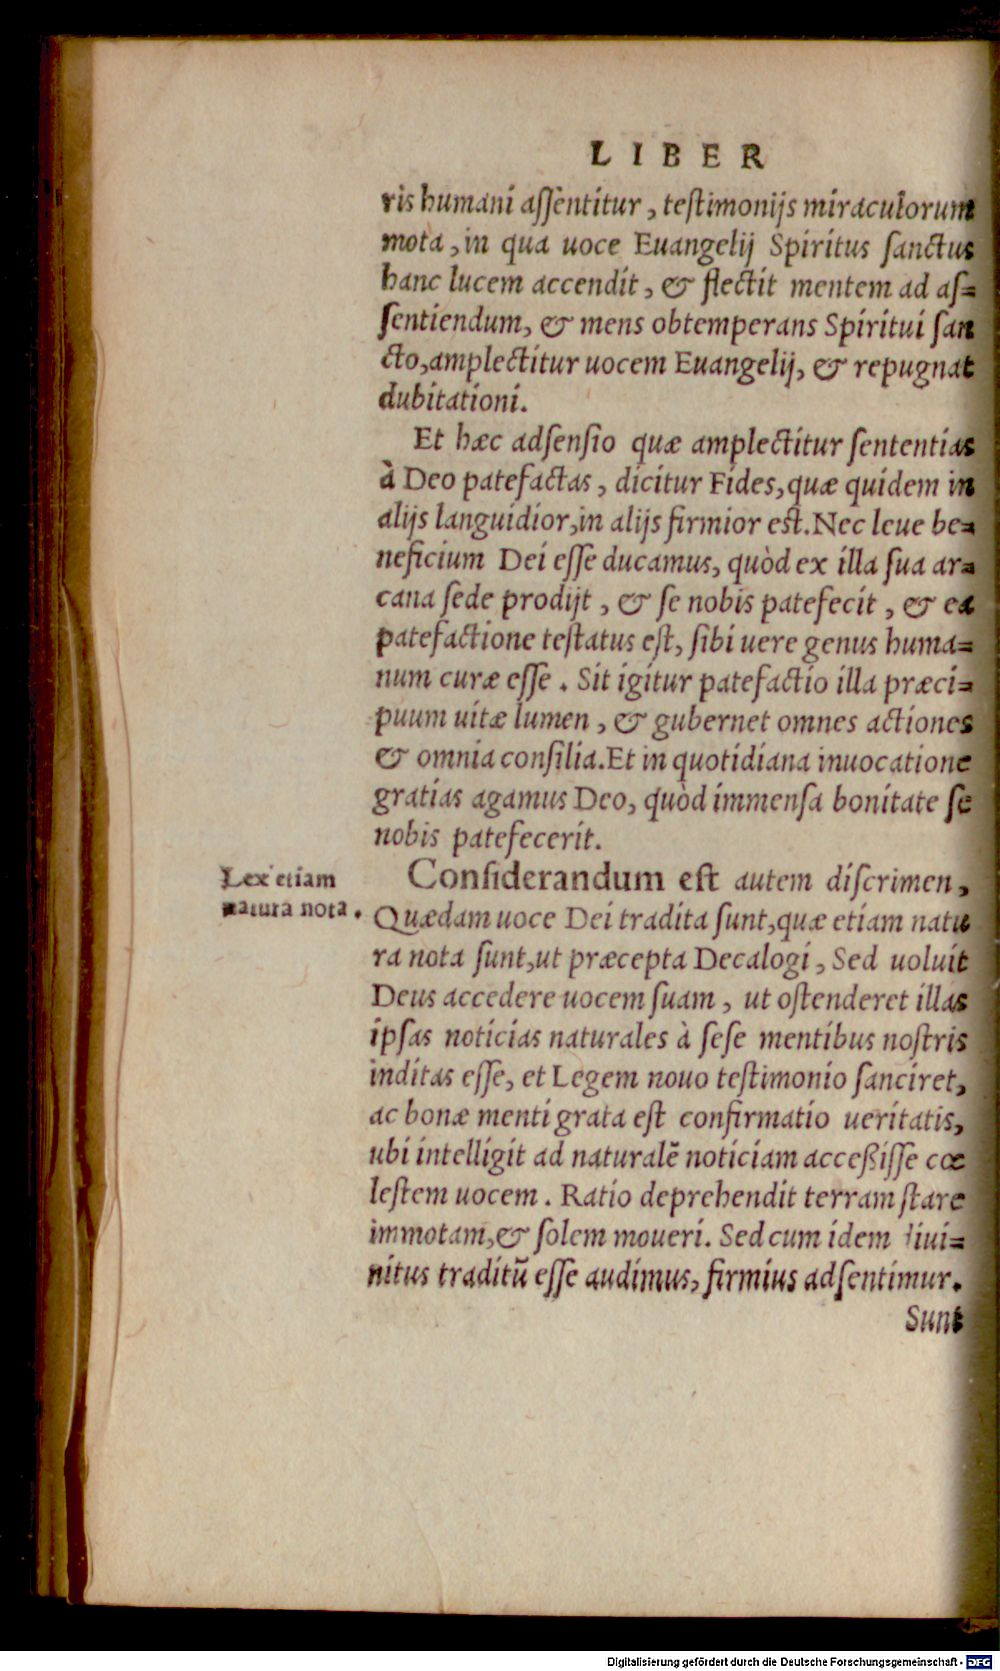 LIBER
ris humani assentitur, testimonijs miraculorum
mota, in qua uoce Euangelij Spiritus sanctus
hanc lucem accendit, & flectit mentem ad as=
sentiendum, & mens obtemperans Spiritui san
cto, amplectitur uocem Euangelij, & repugnat
dubitationi.
Et hæc adsensio quæ amplectitur sententias
à Deo patefactas, dicitur Fides, quæ quidem in
alijs languidior, in alijs firmior est. Nec leue be=
neficium Dei esse ducamus, quòd ex illa sua ar=
cana sede prodijt, & se nobis patefecit, & ea
patefactione testatus est, sibi uere genus huma=
num curæ esse. Sit igitur patefactio illa præci=
puum uitæ lumen, & gubernet omnes actiones
& omnia consilia. Et in quotidiana inuocatione
gratias agamus Deo, quòd immensa bonitate se
nobis patefecerit.
Lex etiam
natura nota.
Considerandum est autem discrimen,
Quædam uoce Dei tradita sunt, quæ etiam natu
ra nota sunt, ut præcepta Decalogi, Sed uoluit
Deus accedere uocem suam, ut ostenderet illas
ipsas noticias naturales à sese mentibus nostris
inditas esse, et Legem nouo testimonio sanciret,
ac bonæ menti grata est confirmatio ueritatis,
ubi intelligit ad naturalẽ noticiam acceßisse cœ
lestem uocem. Ratio deprehendit terram stare
immotam, & solem moueri. Sed cum idem diui=
nitus traditũ esse audimus, firmius adsentimur.
Sunt
Digitalisierung gefördert durch die Deutsche Forschungsgemeinschaft - DFG